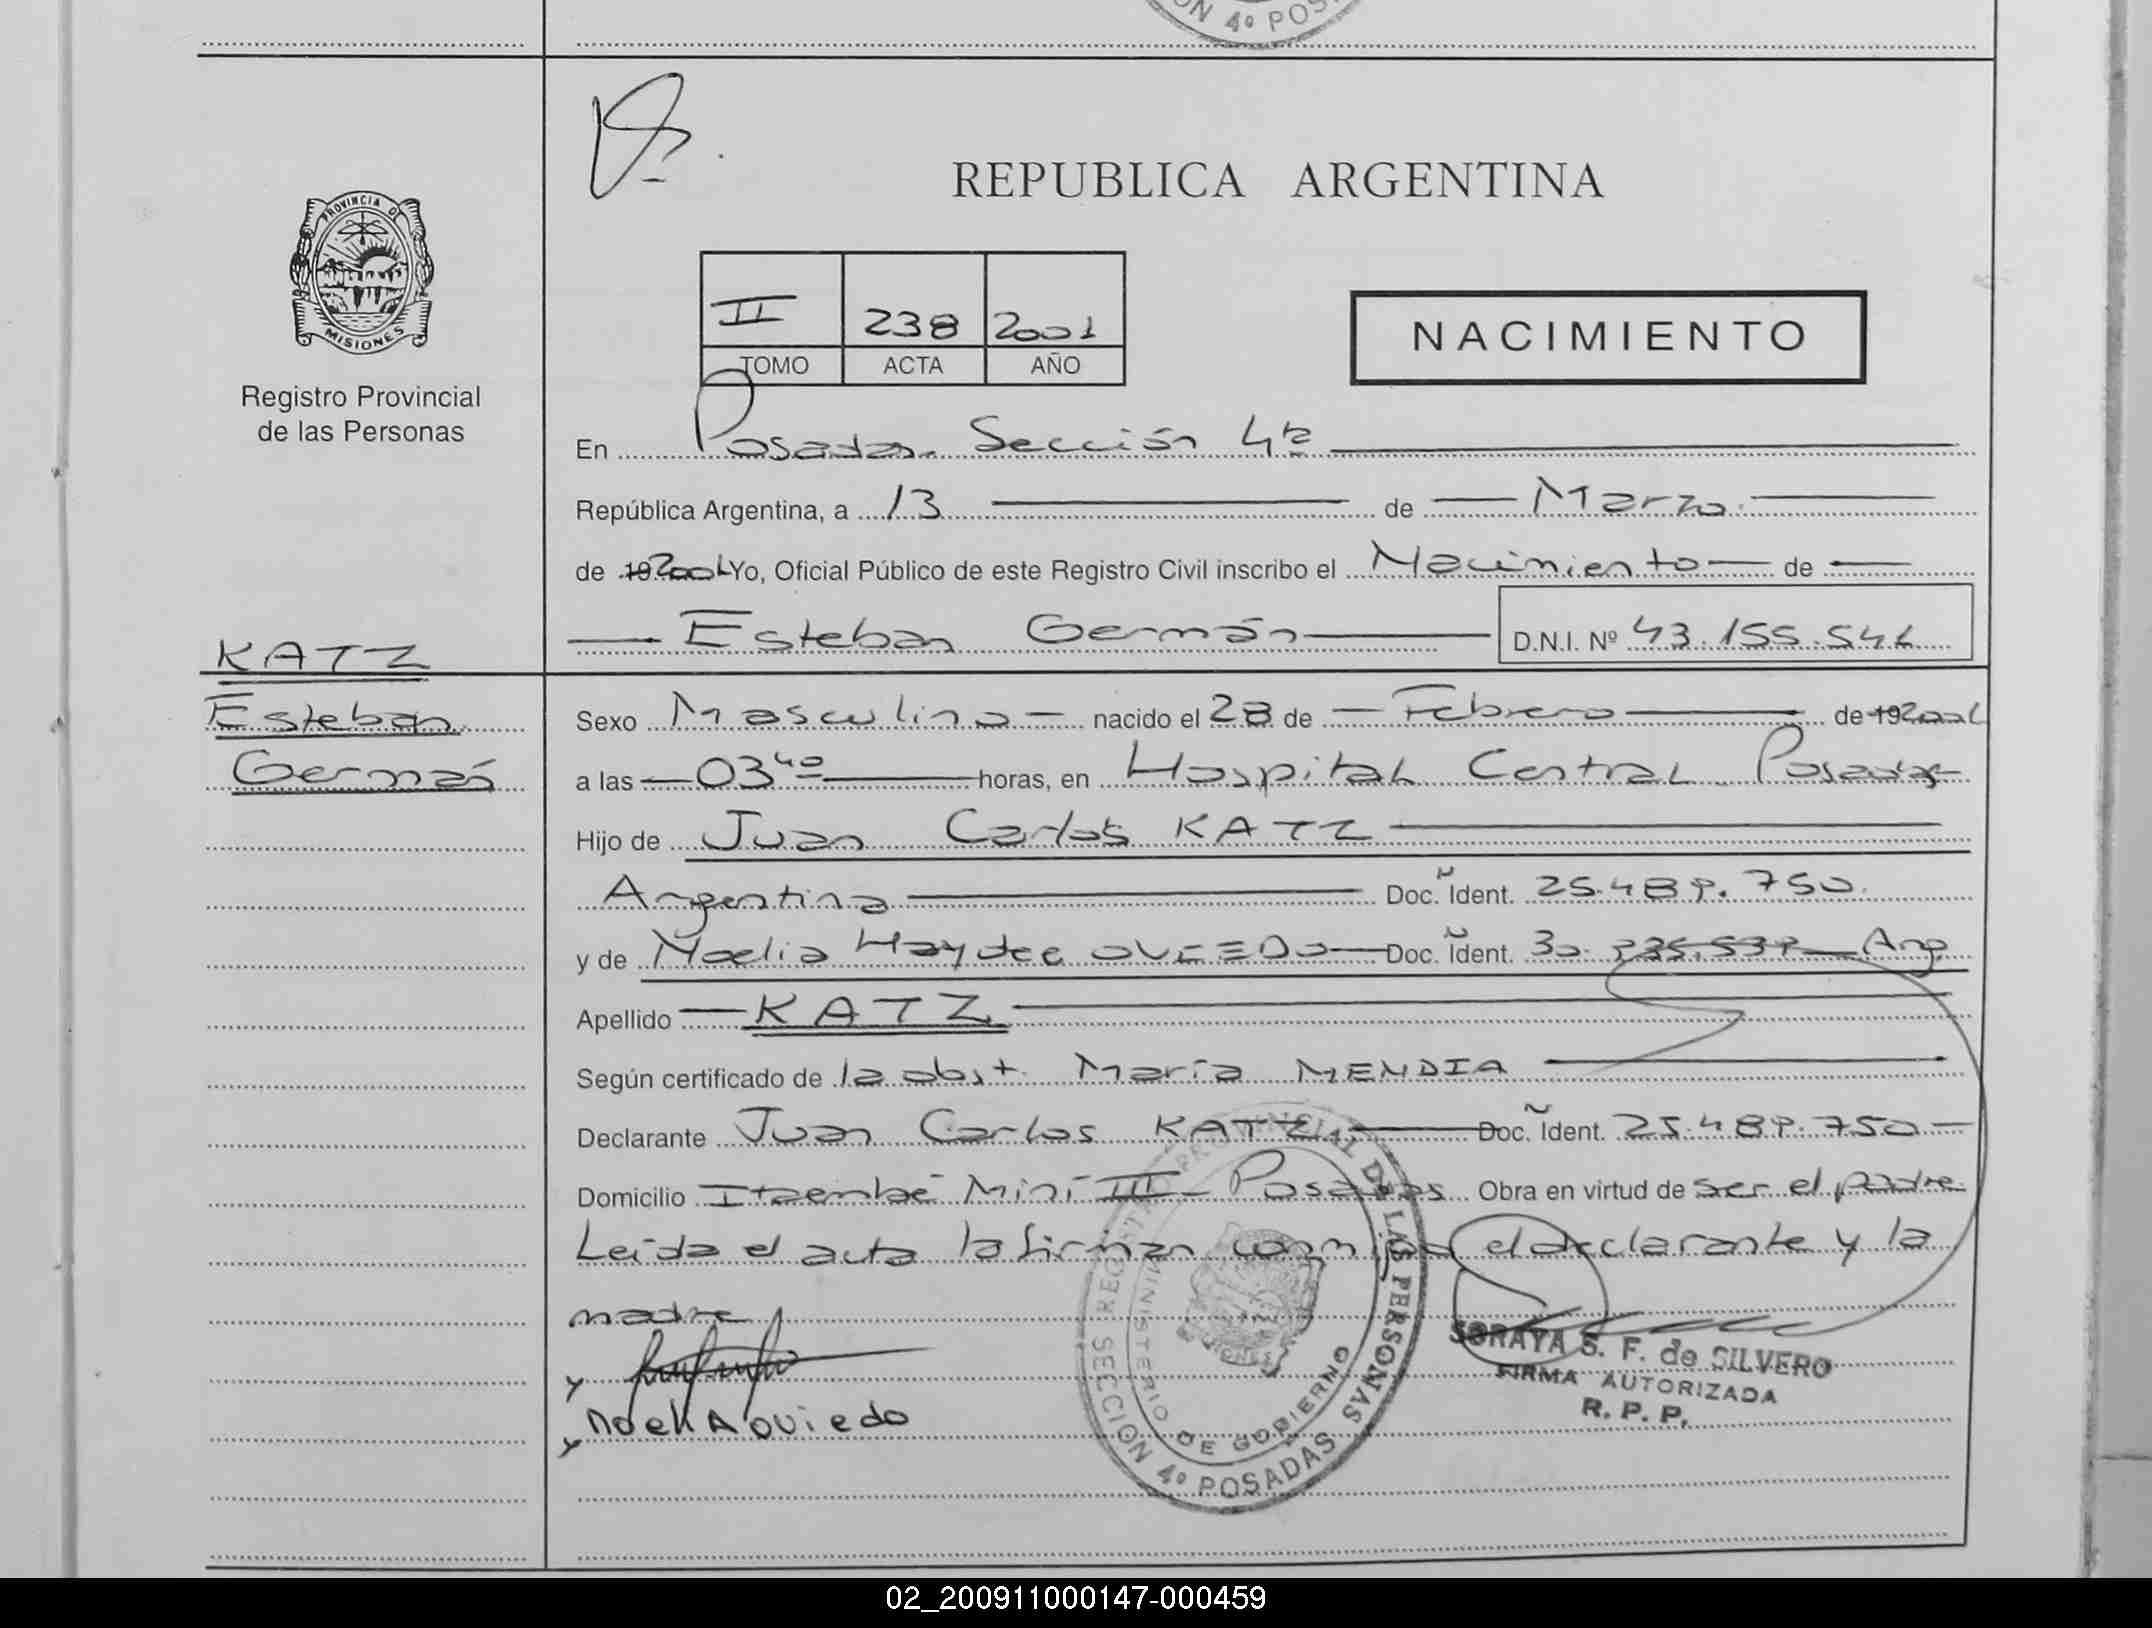 ON 4º POS
REPUBLICA ARGENTINA
PROVINCIA DE
MISIONES
Registro Provincial
de las Personas
II 238 2001
TOMO ACTA AÑO
NACIMIENTO
En Posadas Sección 4ta
República Argentina, a 13 de Marzo
de 19 2001 Yo, Oficial Público de este Registro Civil inscribo el Nacimiento de
Esteban Germán D.N.I. Nº 43.155.546
KATZ
Esteban
Germán
Sexo Masculino nacido el 28 de Febrero de 19 2001
a las 03 40 horas, en Hospital Central Posadas
Hijo de Juan Carlos KATZ
Argentina Doc. Ident. 25.489.750
y de Noelia Haydee OVIEDO Doc. Ident. 30. Arg
Apellido KATZ
Según certificado de la obst. María MENDIA
Declarante Juan Carlos KATZ Doc. Ident. 25.489.750
Domicilio Itaembé Miní III - Posadas Obra en virtud de ser el padre
Leída el acta la firman conmigo el declarante y la
madre
y
y Noelia Oviedo
REGISTRO PROVINCIAL DE LAS PERSONAS
MINISTERIO DE GOBIERNO
SECCION 4º POSADAS
SORAYA S. F. de SILVERO
FIRMA AUTORIZADA
R. P. P.
02_200911000147-000459